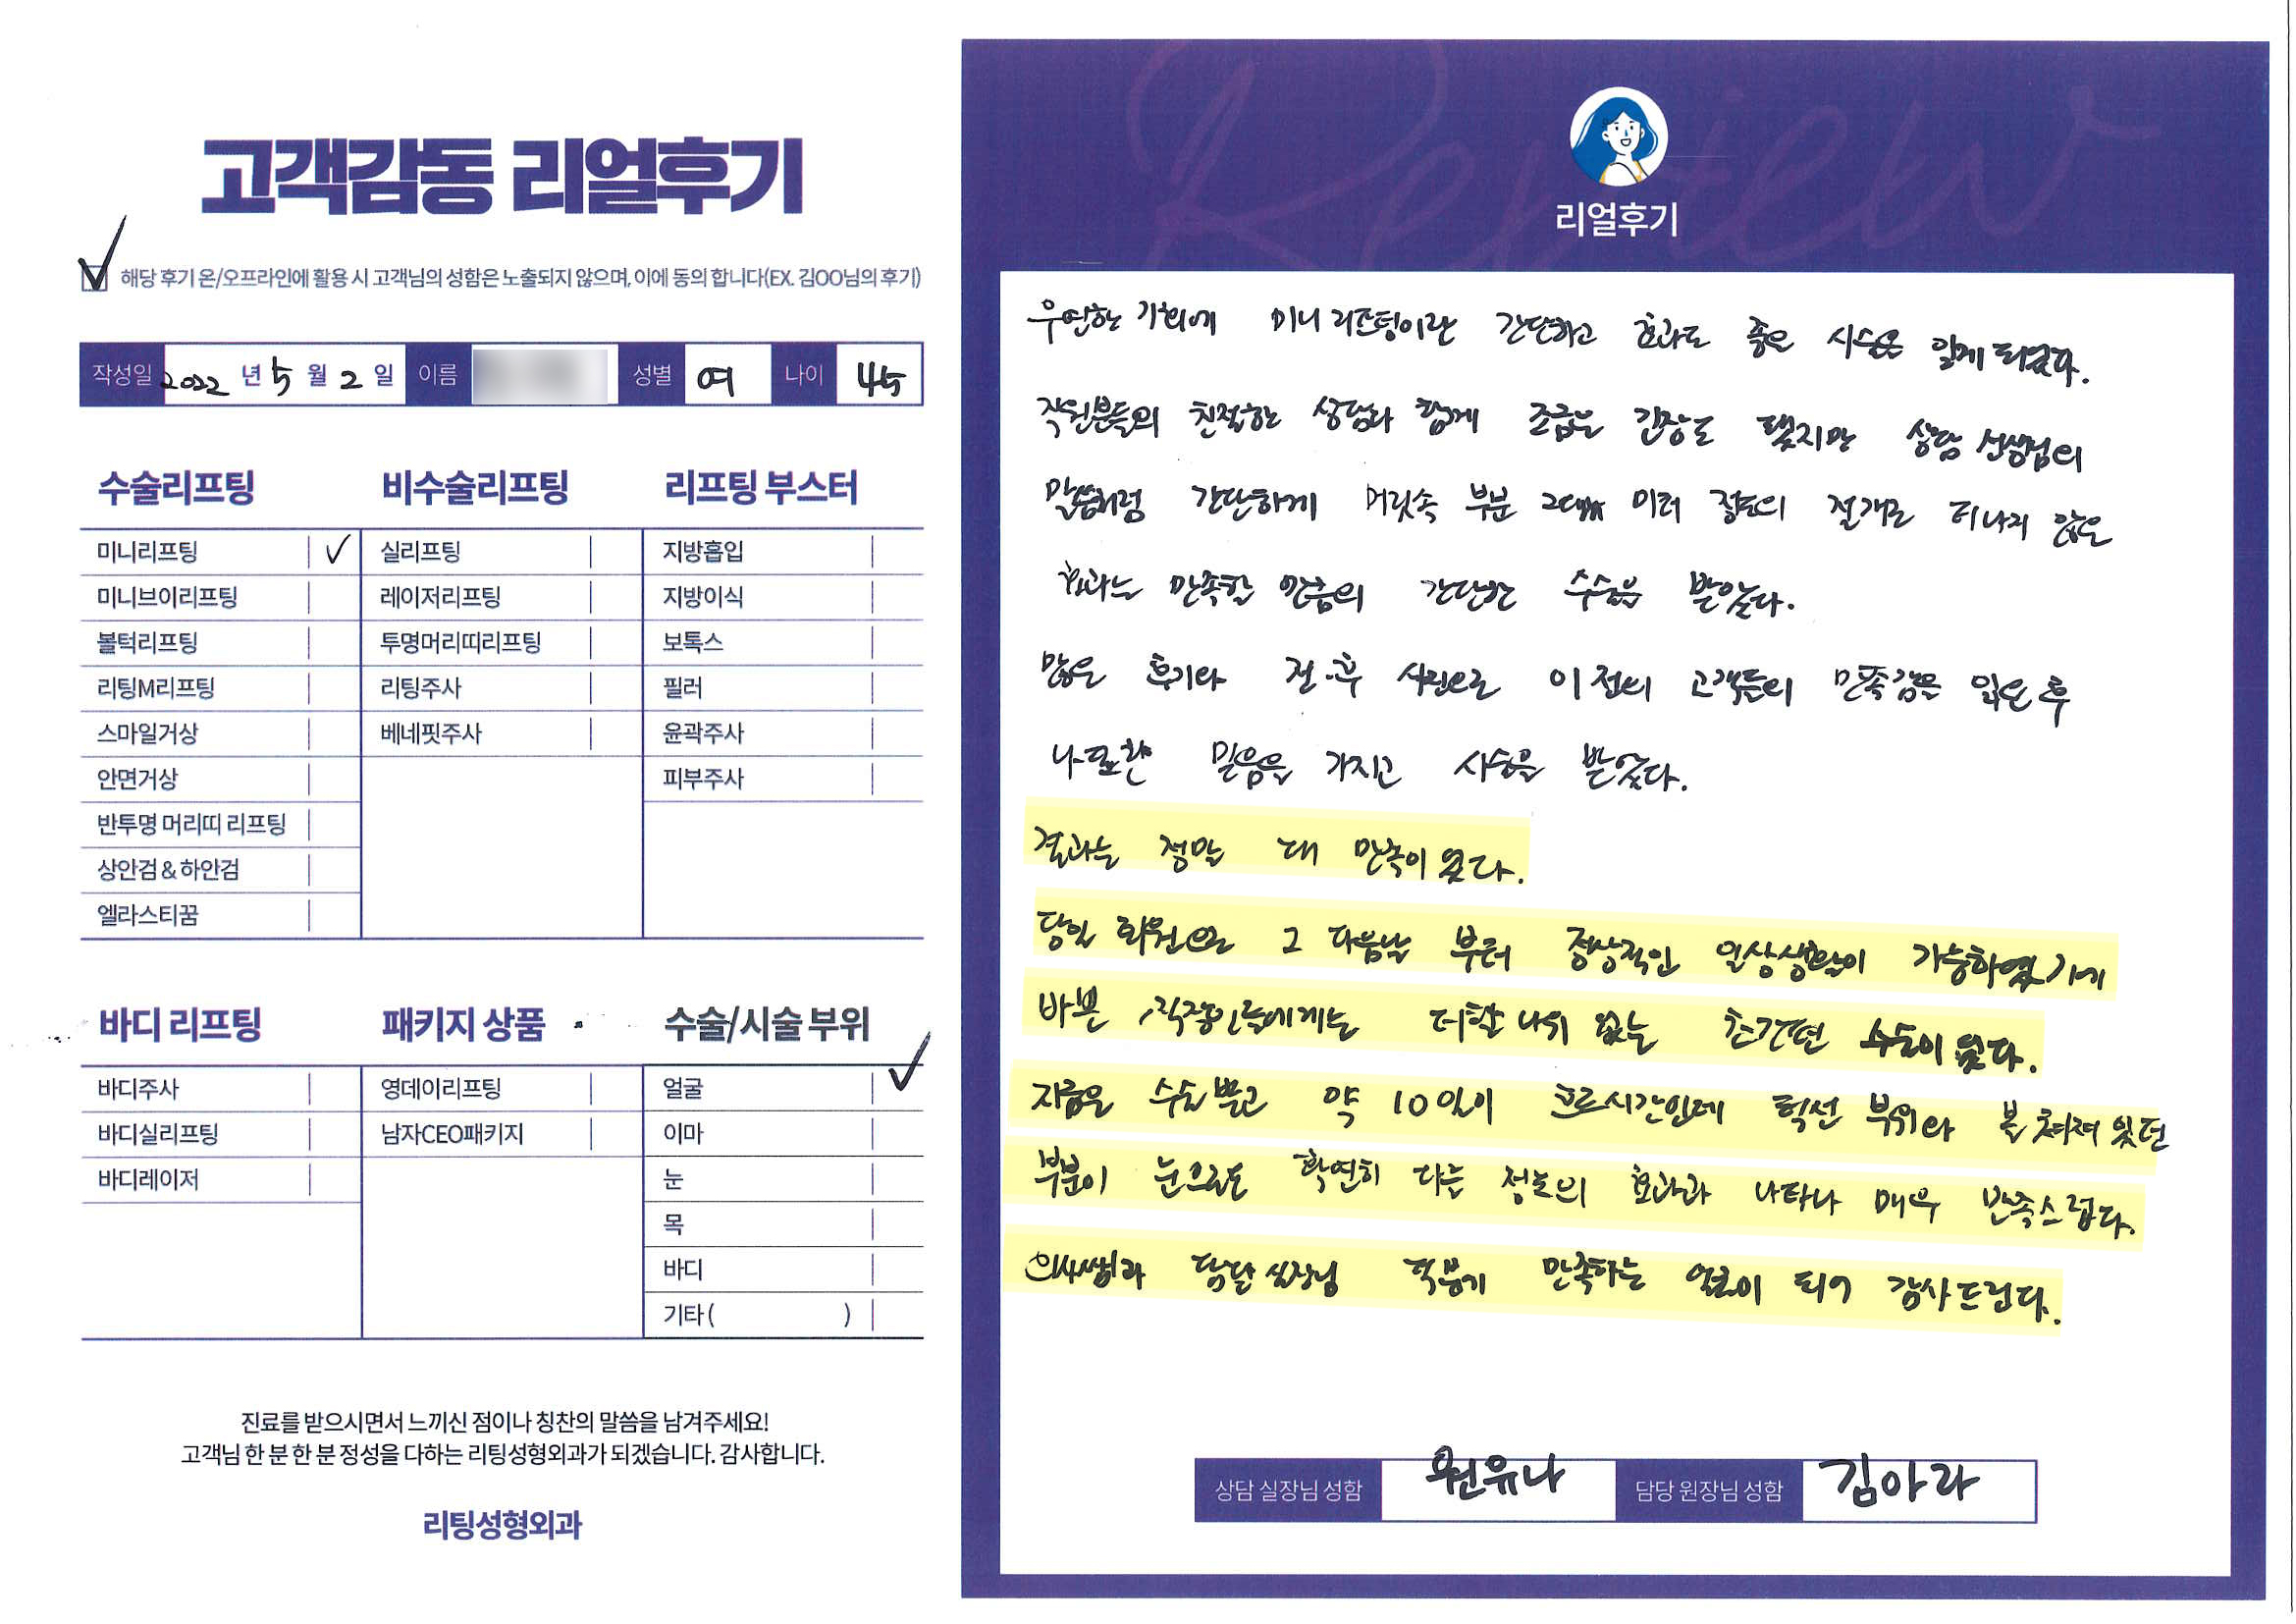 고객감동 리얼후기
해당 후기 온/오프라인에 활용 시 고객님의 성함은 노출되지 않으며, 이에 동의 합니다(EX. 김OO님의 후기)
작성일 2022 년 5 월 2 일 이름 성별 여 나이 45
수술리프팅
미니리프팅 ✓
미니브이리프팅
볼턱리프팅
리팅M리프팅
스마일거상
안면거상
반투명 머리띠 리프팅
상안검 & 하안검
엘라스티꿈
비수술리프팅
실리프팅
레이저리프팅
투명머리띠리프팅
리팅주사
베네핏주사
리프팅 부스터
지방흡입
지방이식
보톡스
필러
윤곽주사
피부주사
바디 리프팅
바디주사
바디실리프팅
바디레이저
패키지 상품
영데이리프팅
남자CEO패키지
수술/시술 부위
얼굴 ✓
이마
눈
목
바디
기타( )
진료를 받으시면서 느끼신 점이나 칭찬의 말씀을 남겨주세요!
고객님 한 분 한 분 정성을 다하는 리팅성형외과가 되겠습니다. 감사합니다.
리팅성형외과
Review
리얼후기
우연한 기회에 미니 리프팅이란 간단하고 효과도 좋은 시술을 알게 되었다.
직원분들의 친절한 상담과 함께 조금은 긴장도 됐지만 상담 선생님의
말씀처럼 간단하게 머릿속 부분 2cm 미터 정도의 절개로 티나지 않은
효과는 만족할 만큼의 간단한 수술을 받았다.
많은 후기와 전·후 사진으로 이전의 고객들의 만족감을 입은 후
나 또한 믿음을 가지고 시술을 받았다.
결과는 정말 대 만족이 었다.
당일 퇴원으로 그 다음날 부터 정상적인 일상생활이 가능하였기에
바쁜 직장인들에게는 더할 나위 없는 초간편 수술이 었다.
지금은 수술 받고 약 10일이 흐른시간인데 턱선 부위와 볼 쳐져 있던
부분이 눈으로도 확연히 다른 정도의 효과과 나타나 매우 만족스럽다.
의사쌤과 담당 실장님 덕분에 만족하는 얼굴이 되어 감사드린다.
상담 실장님 성함 원유나 담당 원장님 성함 김아라